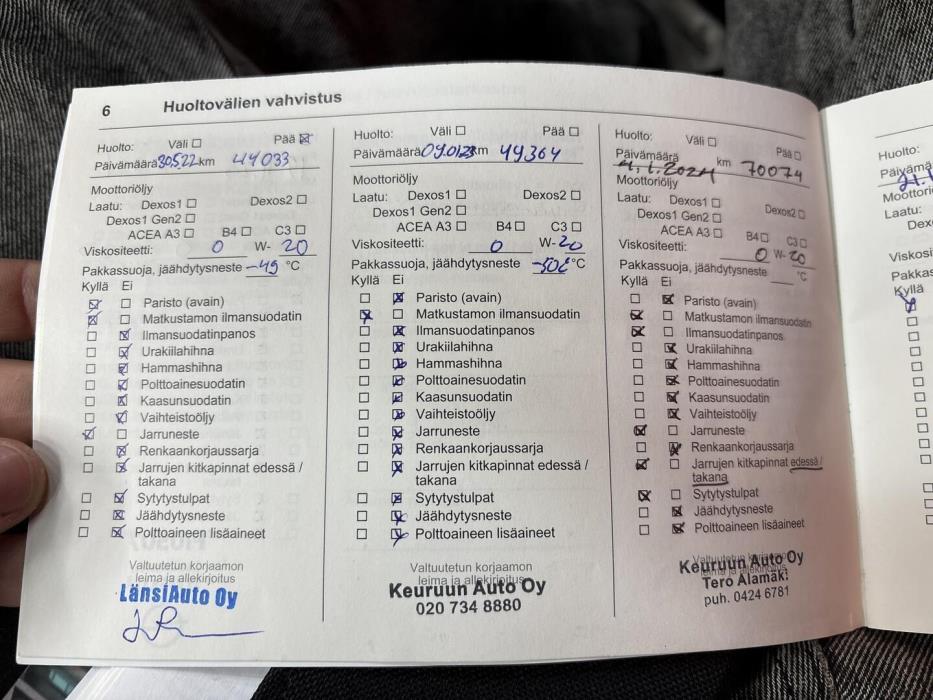 6 Huoltovälien vahvistus
Huolto: Väli ☐ Pää ☒
Päivämäärä 30.5.22 km 44033
Moottoriöljy
Laatu: Dexos1 ☐ Dexos2 ☐
Dexos1 Gen2 ☐
ACEA A3 ☐ B4 ☐ C3 ☐
Viskositeetti: 0 W- 20
Pakkassuoja, jäähdytysneste -49 °C
Kyllä Ei
☒ ☐ Paristo (avain)
☒ ☐ Matkustamon ilmansuodatin
☐ ☒ Ilmansuodatinpanos
☐ ☒ Urakiilahihna
☐ ☒ Hammashihna
☐ ☒ Polttoainesuodatin
☐ ☒ Kaasunsuodatin
☐ ☒ Vaihteistoöljy
☒ ☐ Jarruneste
☐ ☒ Renkaankorjaussarja
☐ ☒ Jarrujen kitkapinnat edessä /
takana
☐ ☒ Sytytystulpat
☐ ☒ Jäähdytysneste
☐ ☒ Polttoaineen lisäaineet
Valtuutetun korjaamon
leima ja allekirjoitus
LänsiAuto Oy
Huolto: Väli ☐ Pää ☐
Päivämäärä 09.01.23 km 49364
Moottoriöljy
Laatu: Dexos1 ☐ Dexos2 ☐
Dexos1 Gen2 ☐
ACEA A3 ☐ B4 ☐ C3 ☐
Viskositeetti: 0 W- 20
Pakkassuoja, jäähdytysneste °C
Kyllä Ei
☐ ☒ Paristo (avain)
☒ ☐ Matkustamon ilmansuodatin
☐ ☒ Ilmansuodatinpanos
☐ ☒ Urakiilahihna
☐ ☒ Hammashihna
☐ ☒ Polttoainesuodatin
☐ ☒ Kaasunsuodatin
☐ ☒ Vaihteistoöljy
☐ ☒ Jarruneste
☐ ☒ Renkaankorjaussarja
☐ ☒ Jarrujen kitkapinnat edessä /
takana
☐ ☒ Sytytystulpat
☐ ☒ Jäähdytysneste
☐ ☒ Polttoaineen lisäaineet
Valtuutetun korjaamon
leima ja allekirjoitus
Keuruun Auto Oy
020 734 8880
Huolto: Väli ☐ Pää ☐
Päivämäärä 4.1.2024 km 70074
Moottoriöljy
Laatu: Dexos1 ☐ Dexos2 ☐
Dexos1 Gen2 ☐
ACEA A3 ☐ B4 ☐ C3 ☐
Viskositeetti: 0 W- 20
Pakkassuoja, jäähdytysneste °C
Kyllä Ei
☐ ☒ Paristo (avain)
☒ ☐ Matkustamon ilmansuodatin
☒ ☐ Ilmansuodatinpanos
☐ ☒ Urakiilahihna
☐ ☒ Hammashihna
☐ ☒ Polttoainesuodatin
☐ ☒ Kaasunsuodatin
☐ ☒ Vaihteistoöljy
☒ ☐ Jarruneste
☐ ☒ Renkaankorjaussarja
☒ ☐ Jarrujen kitkapinnat edessä /
takana
☒ ☐ Sytytystulpat
☐ ☒ Jäähdytysneste
☐ ☒ Polttoaineen lisäaineet
Valtuutetun korjaamon
leima ja allekirjoitus
Keuruun Auto Oy
Tero Alamäki
puh. 0424 6781
Huolto:
Päivämä
Moottori
Laatu:
Dex
Viskosi
Pakkas
Kyllä